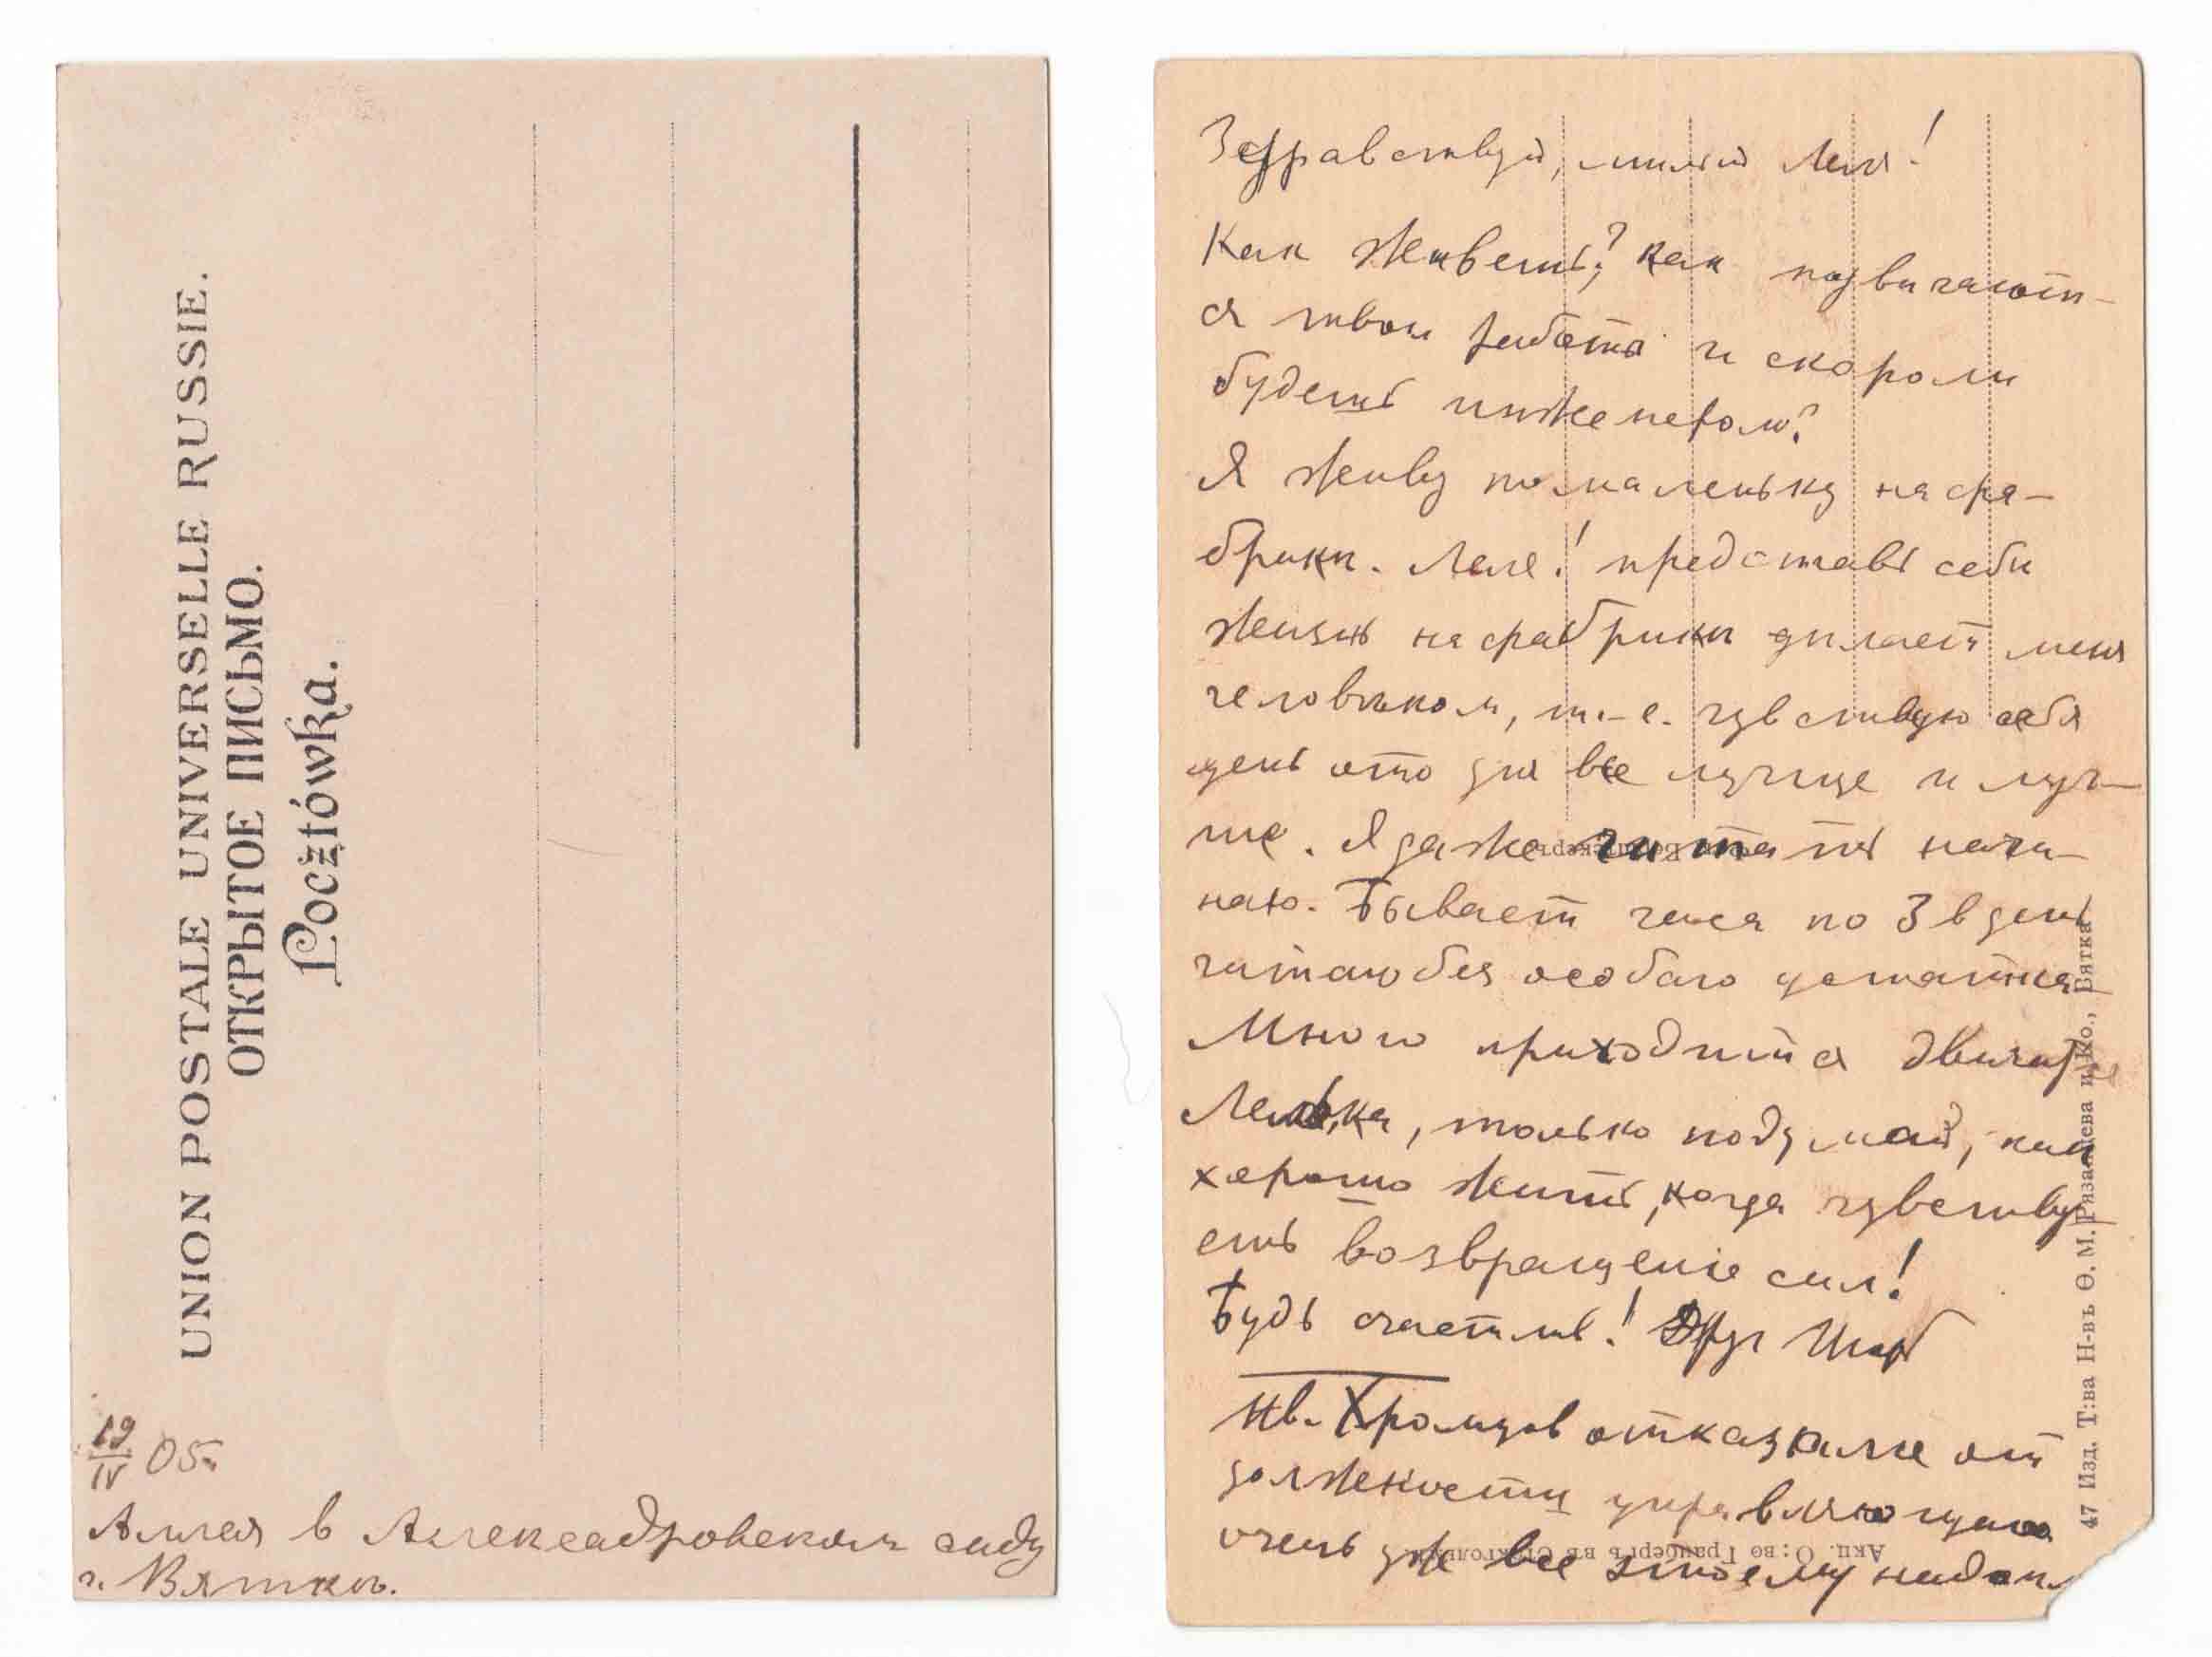 UNION POSTALE UNIVERSELLE RUSSIE.
ОТКРЫТОЕ ПИСЬМО.
Pocztówka.
19/IV 05.
Аллея в Александровском саду
г. Вяткѣ.
Здравствуй, милый Леля!
Как живешь? Как подвигают-
ся твои работы и скороли
будешь инженером?
Я живу помаленьку на фа-
брикѣ. Леля! представь себѣ
жизнь на фабрикѣ дѣлает меня
человѣком, т.-е. чувствую себя
день ото дня все лучше и луч-
ше. Я даже читать начи-
наю. Бывает часа по 3 в день
читаю без особаго
Много приходится двигат
Лелька, только подумай, как
хорошо жить, когда чувству-
ешь возвращеніе сил!
Будь счастлив! Друг
Ив. Храмцов отказался от
должности управляющаго
очень уже все
47 Изд. Т:ва Н-въ Ѳ. М. Рязанцева и Ко., Вятка
Акц. О:во Гранбергъ въ Стокгольмѣ